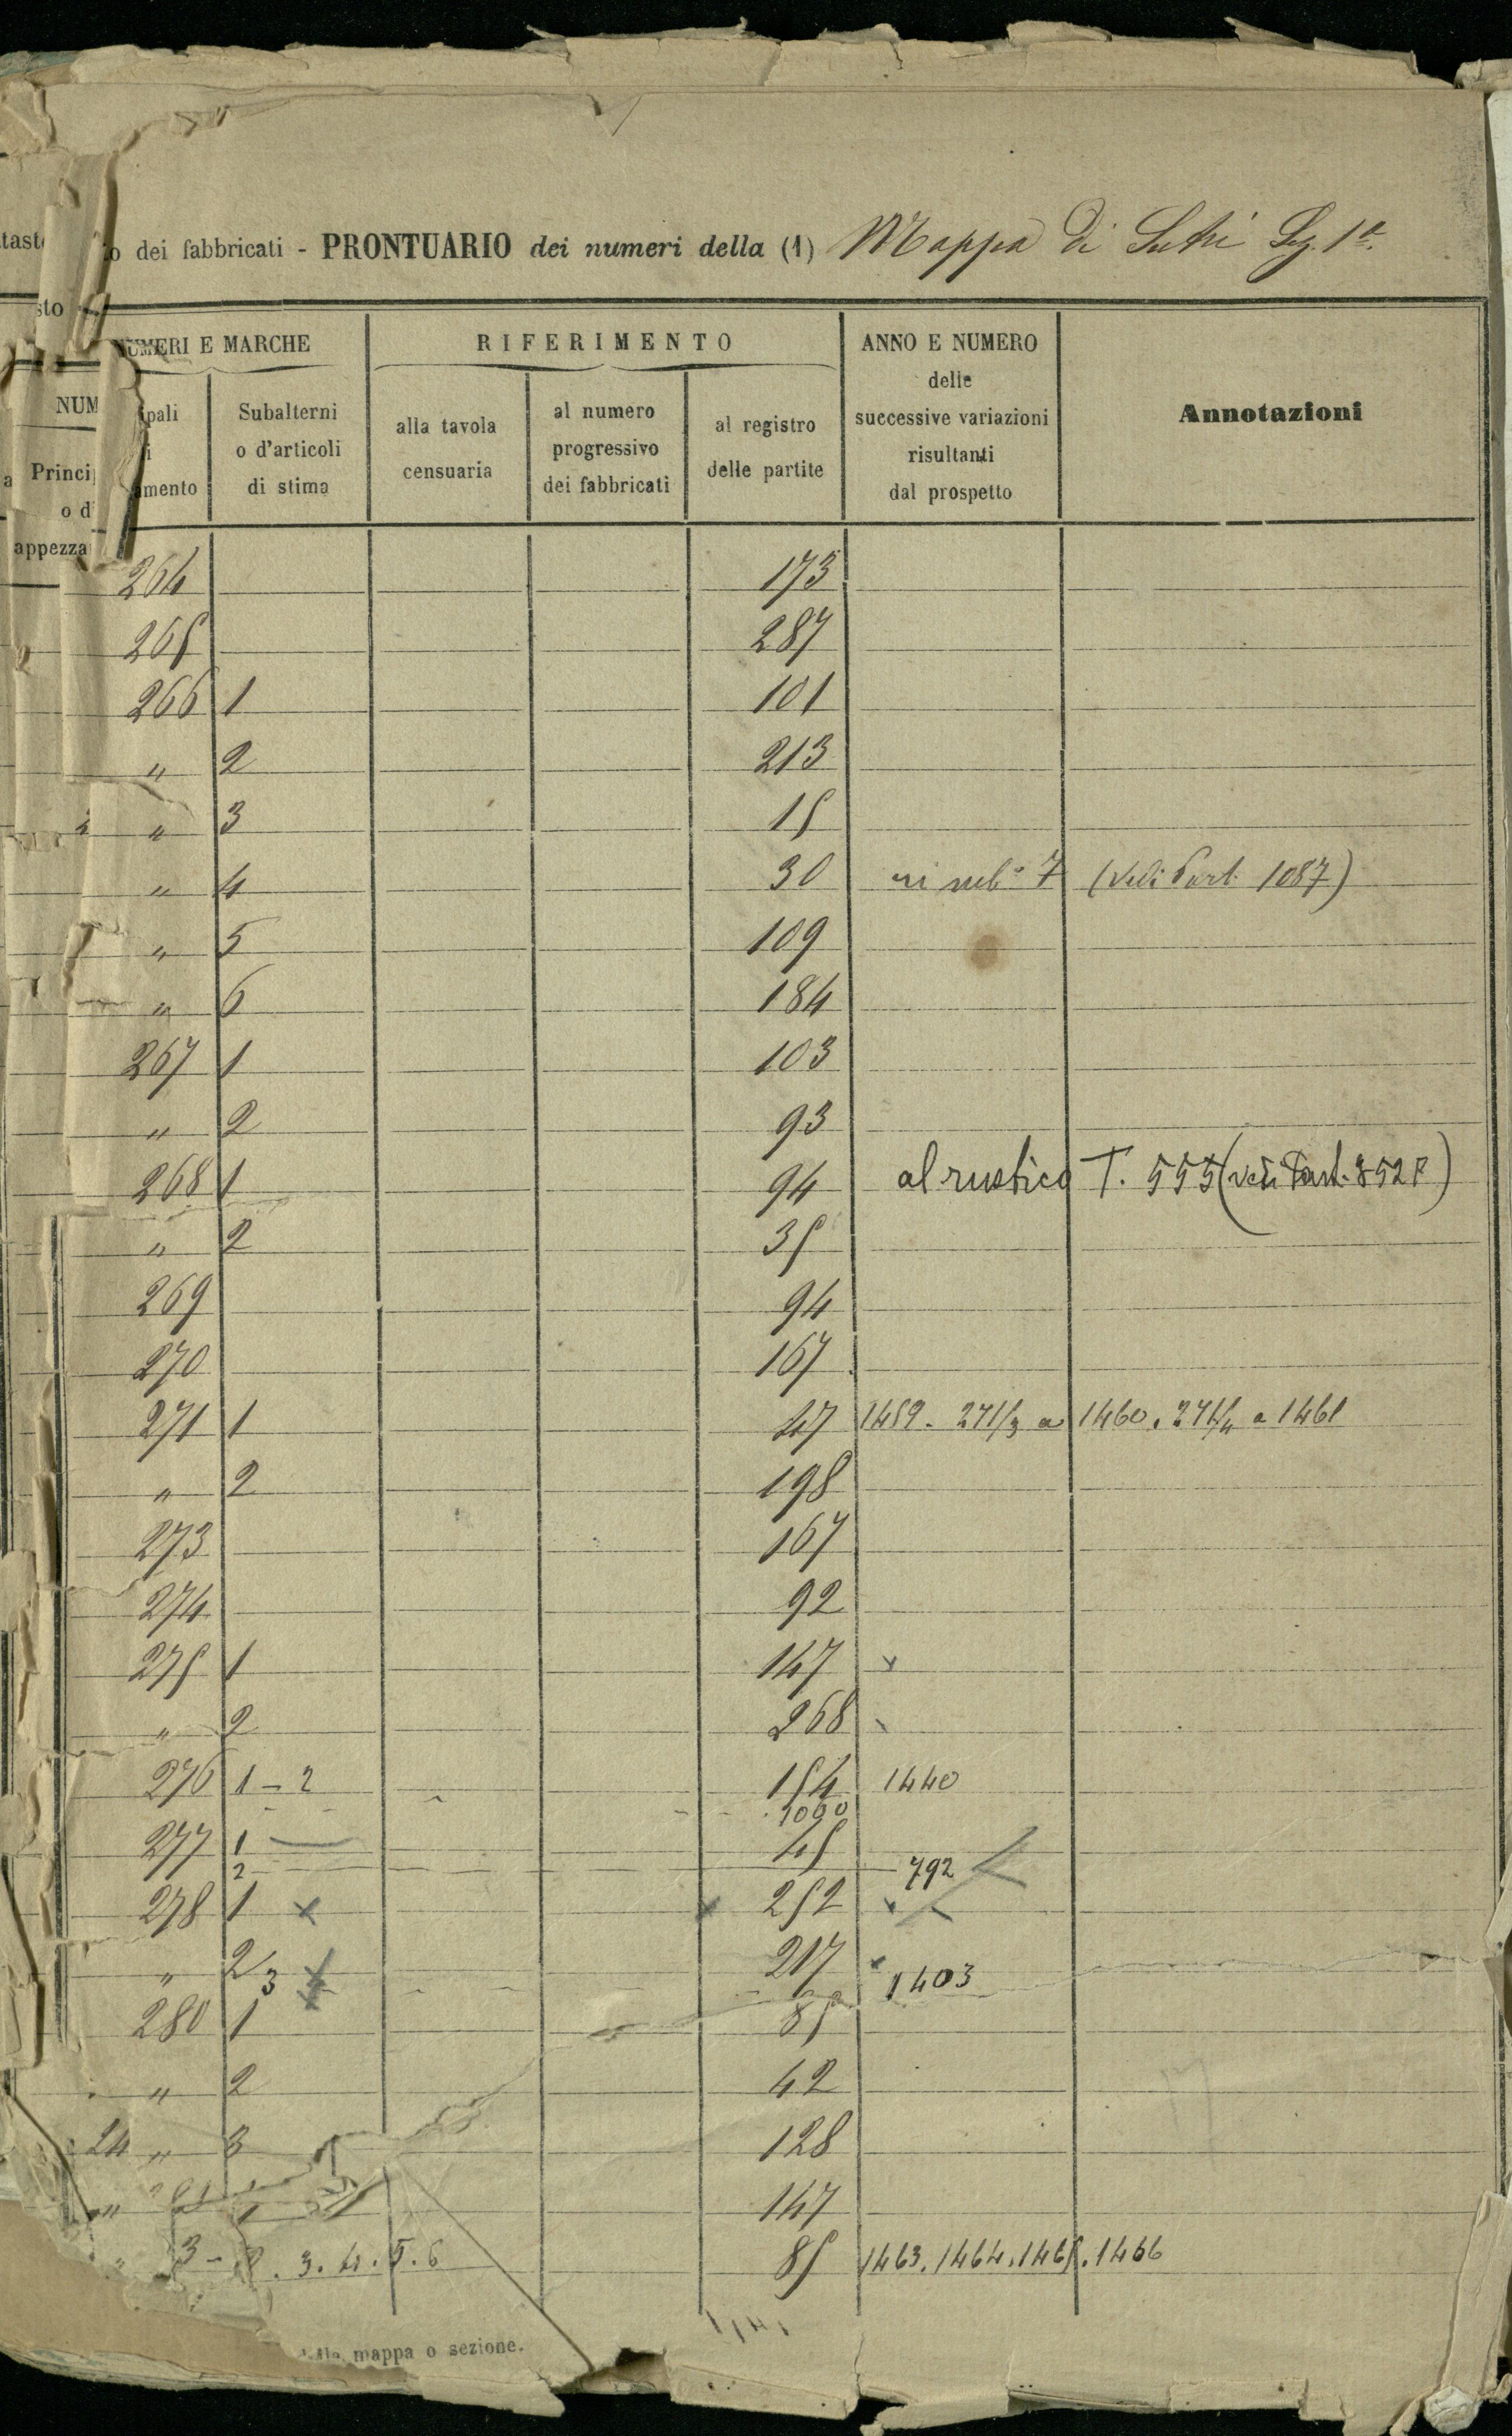 o dei fabbricati - PRONTUARIO dei numeri della (1) Mappa di Sutri Sez. 1ª
NUMERI E MARCHE
RIFERIMENTO
ANNO E NUMERO
delle
successive variazioni
risultanti
dal prospetto
Annotazioni
Subalterni
o d'articoli
di stima
alla tavola
censuaria
al numero
progressivo
dei fabbricati
al registro
delle partite
264 173
265 287
266 1 101
" 2 213
" 3 15
" 4 30 7 (Vedi Part. 1087)
" 5 109
" 6 184
267 1 103
" 2 93
268 1 94 al rustico T. 555 (vedi Part. 852
" 2 35
269 94
270 167
271 1 47 1459 - 271/3 a 1460. 271/4 a 1461
" 2 198
273 167
274 92
275 1 147 x
" 2 268
276 1 - 2 154 1440
1090
277 1 45
2 792
278 1 x x 252 x
" 2 217 x
3 x 1403
280 1 85
" 2 42
24 " 3 128
" 1 147
" 3 - 3. 4. 5. 6 85 1463. 1464. 1465. 1466
mappa o sezione.